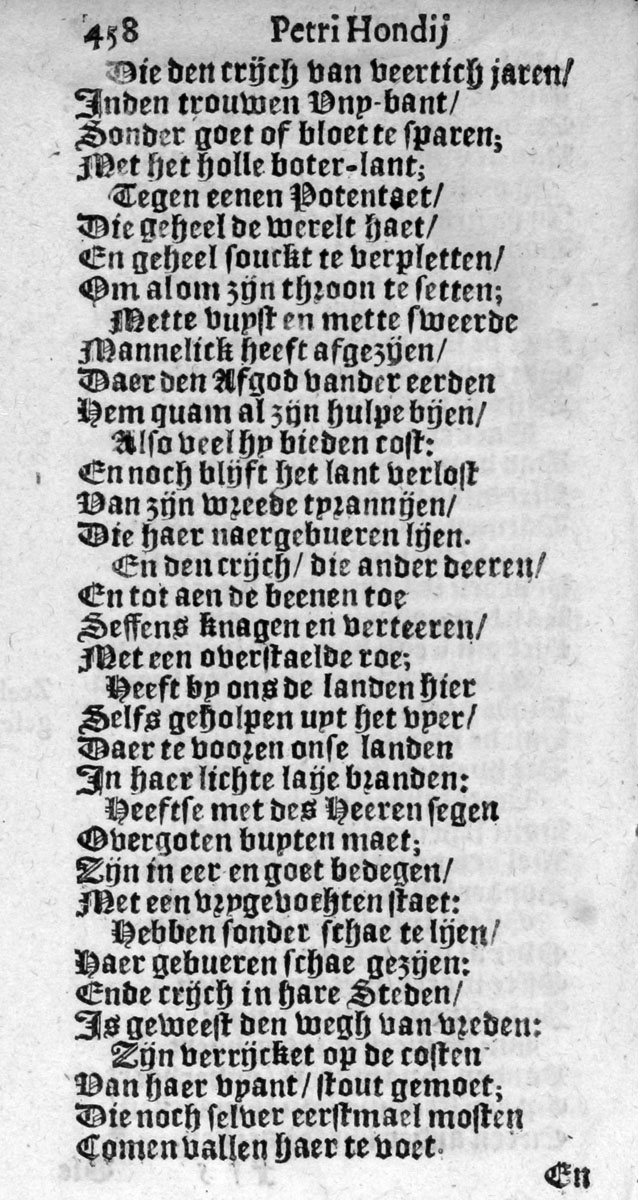 458 Petri Hondij
Die den crijch van veertich jaren/
Inden trouwen Vny-bant/
Sonder goet of bloet te sparen;
Met het holle boter-lant;
Tegen eenen Potentaet/
Die geheel de werelt haet/
En geheel souckt te verpletten/
Om alom zijn throon te setten;
Mette vuyst en mette sweerde
Mannelick heeft afgezijen/
Daer den Afgod vander eerden
Hem quam al zijn hulpe bijen/
Also veel hy bieden cost:
En noch blijft het lant verlost
Van zijn wreede tyrannijen/
Die haer naergebueren lijen.
En den crijch/ die ander deeren/
En tot aen de beenen toe
Seffens knagen en verteeren/
Met een overstaelde roe;
Heeft by ons de landen hier
Selfs geholpen uyt het vyer/
Daer te vooren onse landen
In haer lichte laije branden:
Heeftse met des Heeren segen
Overgoten buyten maet;
Zijn in eer en goet bedegen/
Met een vrygevochten staet:
Hebben sonder schae te lijen/
Haer gebueren schae gezijen:
Ende crijch in hare Steden/
Is geweest den wegh van vreden:
Zijn verrijcket op de costen
Van haer vyant/ stout gemoet;
Die noch selver eerstmael mosten
Comen vallen haer te voet.
En